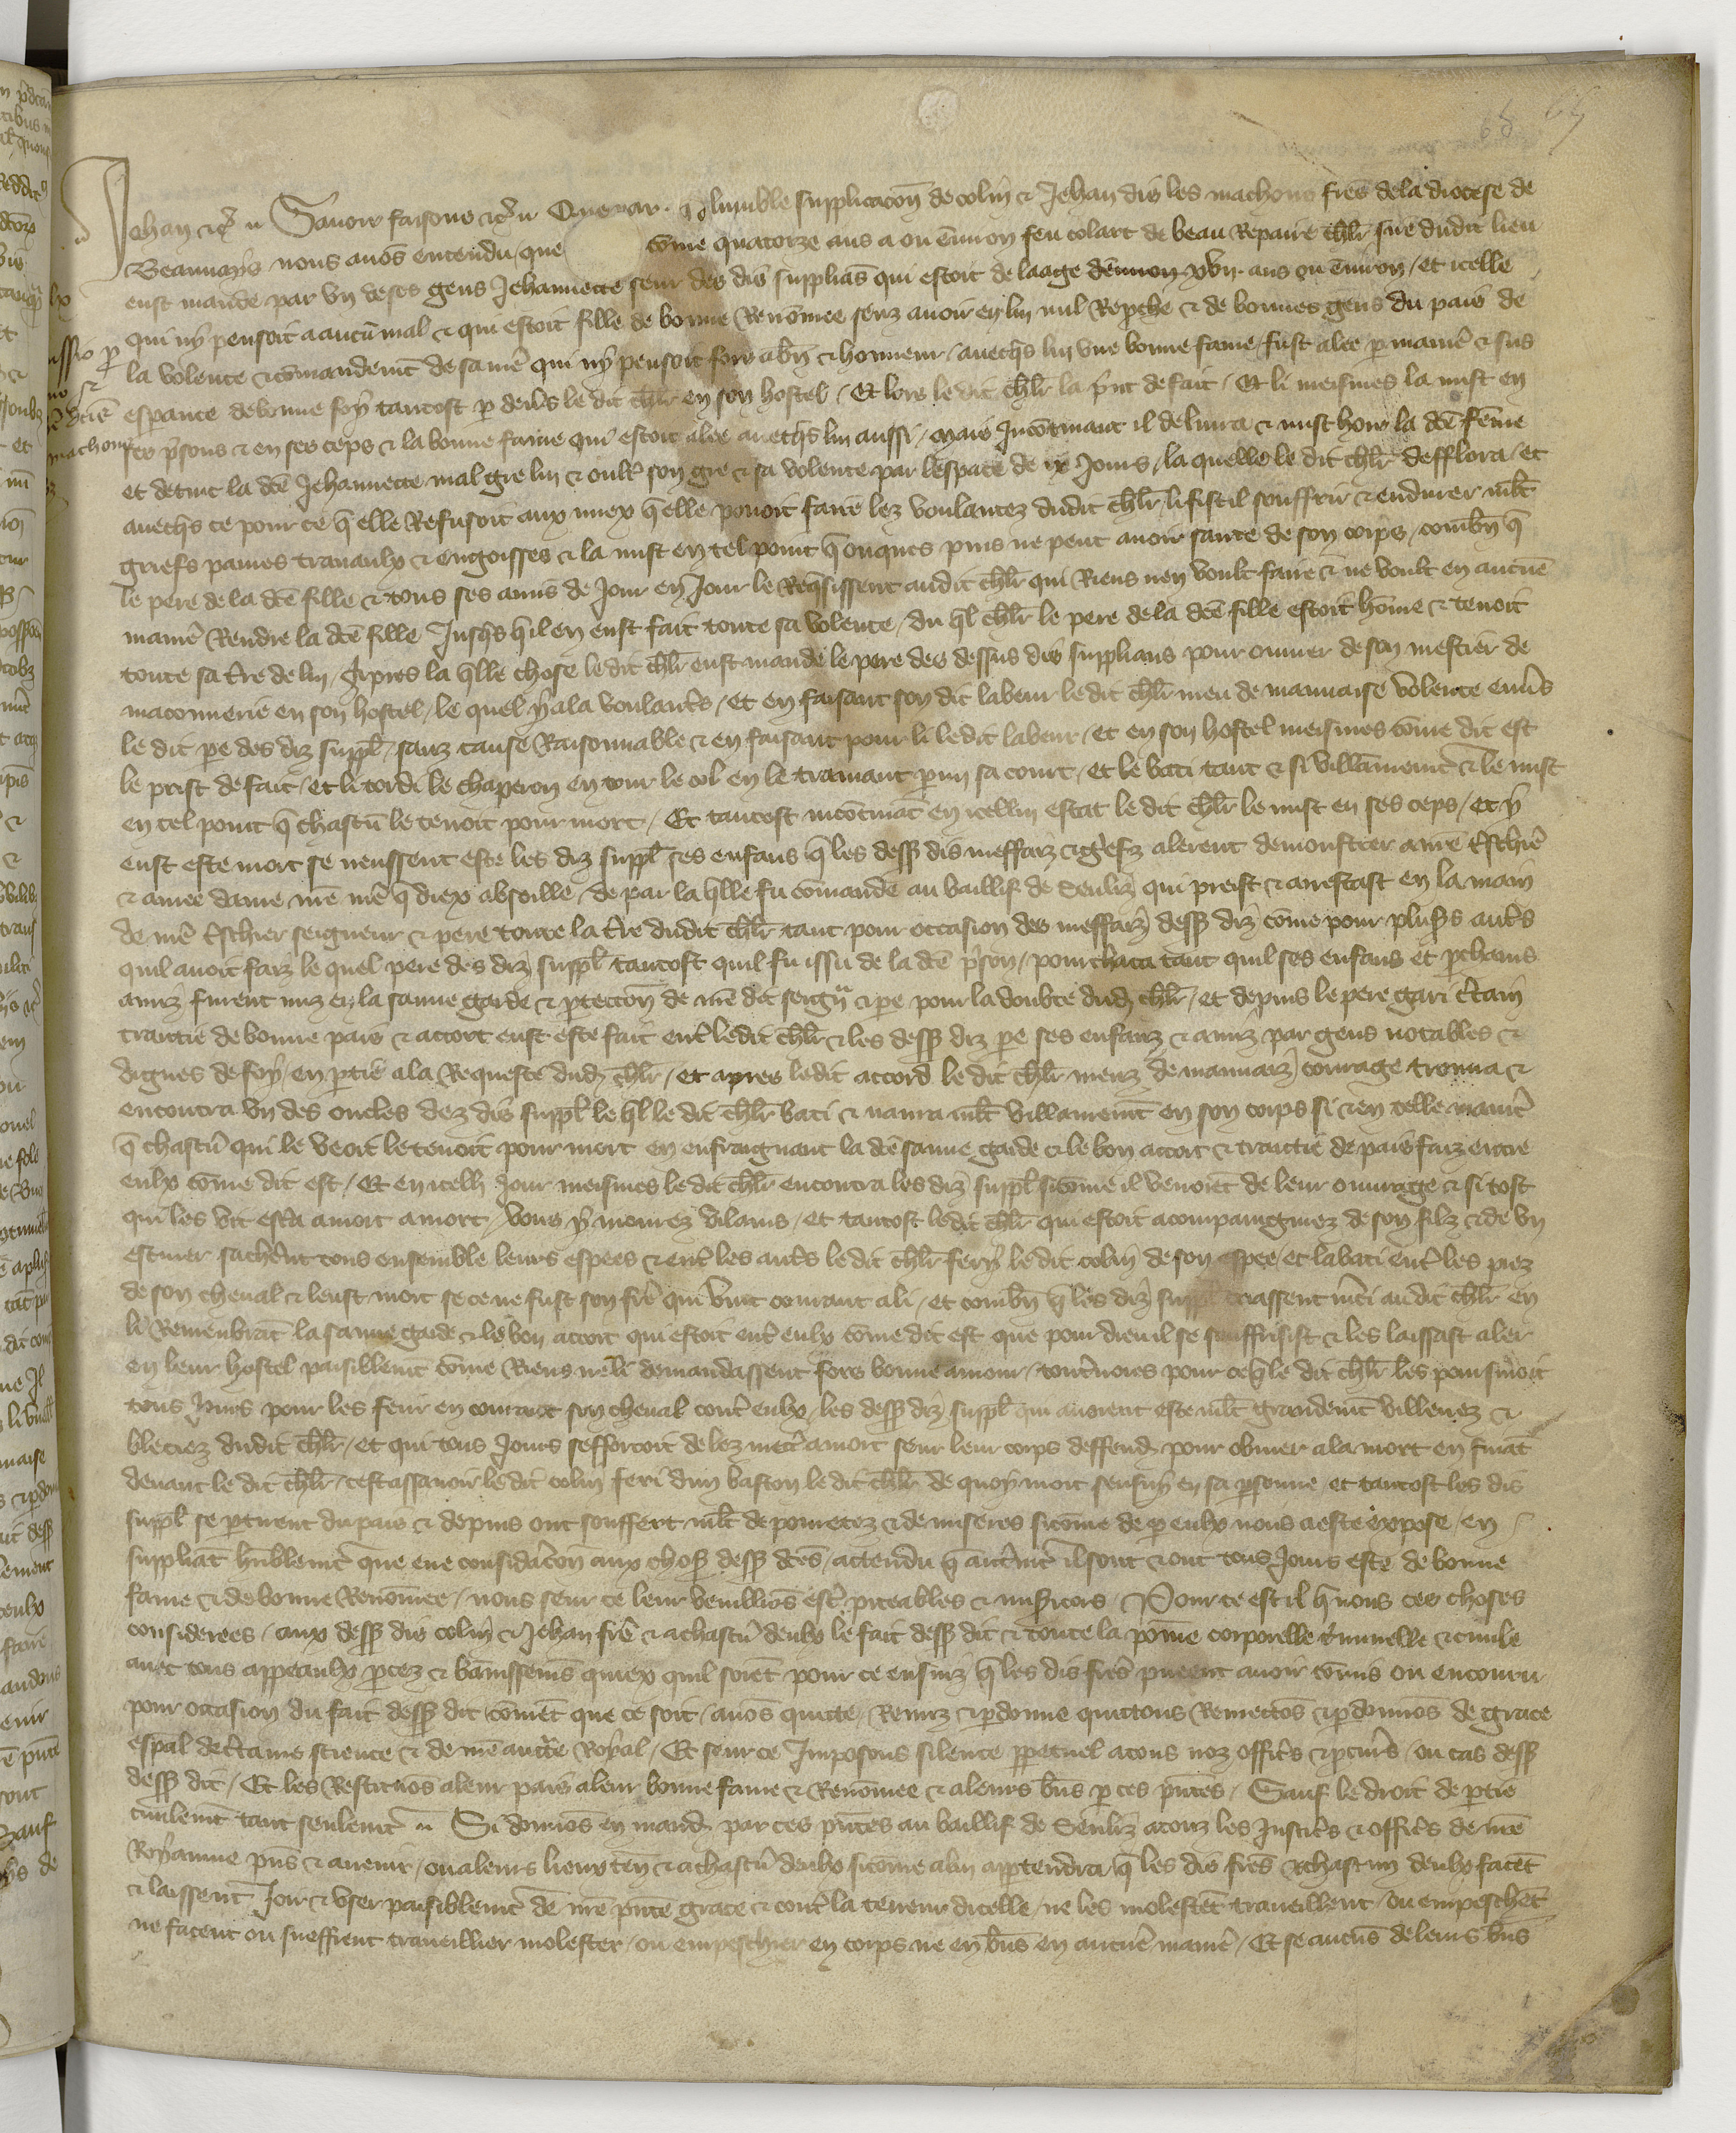 68 69
Jehan etc̃ Savoir faisons etc̃ Que par lumble supplicacõn de colin et Jehan dis les machons freˢ de la diocese de
Beauvayˢ nous avoñs entendu que cõme quatorze ans a ou environ feu colart de beau Repaire chlr̃ sire dudit lieu
eust mande par un de ses gens Jehannette seur des dis supplians̃ qui estoit de laage denviron xvij ans ou environ / et icelle
qui ny pensoit a aucũ mal et qui estoit fille de bonne Renõmee senz avoir en lui nul Reprche et de bonnes gens du pais de
la volente et cõmandemt̃ de sa mer̃ qui ny pensoit fors a bñ et honneur / avecqˢ lui une bonne fame / fust alee p maniẽ et sus
esperance de bonne foy tantost p devs̃ le dit chlr̃ en son hostel / Et lors le dit chlr̃ la prit de fait / Et li meismes la mist en
ses prisons et en ses ceps et la bonne fame qui estoit alee avecqˢ lui aussi / mais Incõtinant il delivra et mist hors la dcẽ fẽme
et detint la dcẽ Jehannette mal gre lui et oultˢ son gre et sa volente par lespace de ix Jours / la quelle le dit chlr̃ defflora / et
avecqˢ ce pour ce q̃ elle Refusoit aux miex q̃ elle povoit faire lez voulantez dudit chlr̃ / li fist il souffrir et endurer mlt̃
griefs paines travaulx et engoisses et la mist en tel point q̃ onques puis ne peut avoir sante de son corps / combñ q̃
le pere de la dcẽ fille et tous ses amis de Jour en Jour le Reqissent audit chlr̃ qui Riens nen voult faire et ne voult en aucuñe
maniẽ Rendre la dcẽ fille Jusqˢ q̃l en eust fait toute sa volente / du ql̃ chlr̃ le pere de la dcẽ fille estoit hõme et tenoit
toute sa tr̃re de lui / Apres la qlle chose ledit chlr̃ eust mande le pere des dessus dis supplians pour ouvrer de son mestier de
maconnerie en son hostel / le quel y ala voulantˢ / et en faisant son dit labeur ledit chlr̃ meu de mauvaise volente envs̃
le dit pe des diz suppl̃ / sanz cause Raisonnable et en faisant pour li ledit labeur / et en son hostel meismes cõme dit est
le prist de fait / et li tordi le chaperon en tour le col en le trainant pmi sa court / et le bati tant et si villainemt̃ et le mist
en tel point q̃ chascũ le tenoit pour mort / Et tantost incõtinãt en icellui estat le dit chlr̃ le mist en ses ceps / et y
eust este mort se neussent este les diz suppl̃ ses enfans q̃ les dess dis meffaiz et griefz alerent demonstrer a nr̃e tˢchier
et amee dame nr̃e mer̃ q̃ diex absoille / de par la qlle fu cõmande au baillif de Senliz qui preist et arrestast en la main
de nr̃e tˢchier seigneur et pere toute la tr̃re dudit chlr̃ tant pour occasion des meffaiz dess diz cõme pour plusˢ autˢ
quil avoit faiz le quel pere des diz suppl̃ tantost quil fu issu de la dcẽ prison / pourchaca tant quil ses enfans et pchains
amiz furent miz en la sauve garde et ptectõn de nr̃e dit seigr̃ et pe pour la doubte dud chlr̃ / et depuis le pere gari cˢtain
traitie de bonne pais et accort eust este fait entˢ ledit chlr̃ et les dess diz pe ses enfanz et amiz par gens notables et
dignes de foy / en ptie a la Requeste dud chlr̃ / et apres ledit accord le dit chlr̃ meuz de mauvaiz courage trouva et
encontra un des oncles dez dis suppl̃ le ql̃ le dit chlr̃ bati et navra mlt̃ villainemt̃ en son corps si et en telle maniẽ
q̃ chascũ qui le veoit le tenoit pour mort en enfraignant la dcẽ sauve garde et le bon accort et traitie de pais faiz entre
eulx cõme dit est / Et en icelli Jour meismes le dit chlr̃ encontra les diz suppl̃ sicõme il venoiẽt de leur ouvrage et si tost
qui les vit escria a mort a mort / vous y mourrez vilains / et tantost le dit chlr̃ qui estoit acompaigniez de son filz et de un
escuier sachẽrt tous ensemble leurs espees et entˢ les autˢ le dit chlr̃ fery le dit colin de son espee / et labati entˢ les piez
de son cheval et leust mort se ce ne fust son fr̃e qui vint courant a li / et combñ q̃ les diz suppl̃ criassent mˢci audit chlr̃ en
li Remenbrãt la sauve garde et le bon accort qui estoit entˢ eulx cõme dit est que pour dieu il se souffrisist et les laissast aler
en leur hostel paisiblemt̃ cõme Riens ne li demandassent fors bonne amour / toutˢvoies pour ce q̃ le dit chlr̃ les poursuivoit
tous Jours pour les ferir en courant son cheval contˢ eulx / les dess diz suppl̃ qui avoient este mlt̃ grandemt̃ villenez et
bleciez dudit chlr̃ / et qui tous Jours sefforcoit de lez mettˢ a mort seur leur corps deffend pour obvier a la mort en fuiãt
devant le dit chlr̃ / cestassavoir le dit colin feri dun baston le dit chlr̃ de quoy mort sensuy en sa psonne / et tantost les dis
suppl̃ se ptirent du pais et depuis ont souffert mlt̃ de povretez et de miseres sicõme de p eulx nous a este expose / en
suppliãt hũblemt̃ que eue considˢacõn aux chos dess dcẽs / attendu q̃ autˢmt̃ il sont et ont tous Jours este de bonne
fame et de bonne Renõmee / nous seur ce leur veuilliõs estˢ piteables et miˢicors / Pour ce est il q̃ nous ces choses
considerees / aux dess dis colin et Jehan frẽs et a chascũ deulx le fait dess dit et toute la poine corporelle cˢiminelle et civile
avec tous appeaulx ptez et bãnissemẽs quiex quil soiẽt pour ce ensuiz q̃ les dis frẽs pueent avoir cõmis ou encouru
pour occasion du fait dess dit cõmẽt que ce soit / avoñs quitte / Remiz et pdonne quittons Remettõs et pdonnõs de grace
esp̃al de cˢtaine science et de nr̃e auctˢte Royal / Et seur ce Imposons silence ppetuel a tous noz officˢs et pcurˢs / ou cas dess
dess dit / Et les Restituõs a leur pais a leur bonne fame et Renõmee et a leurs bñs p ces pñtes / Sauf le droit de ptie
civilemt̃ tant seulemt̃ Si donnõs en mand par ces pñtes au baillif de Senliz a touz les Justicˢs et officˢs de nr̃e
Royaume pñs et avenir / ou a leurs lieux teñ et a chascũ deulx sicõme a lui apptendra / q̃ les dis frẽs et chascun deulx facẽt
et laissent Joir et user paisiblemt̃ de nr̃e pñte grace et contˢ la teneur dicelle / ne les molestẽt traveillent / ou empeschẽt
ne facent ou sueffrent traveillier molester / ou empeschier en corps ne en bñs en aucuñe maniẽ / Et se aucũs de leurs bñs